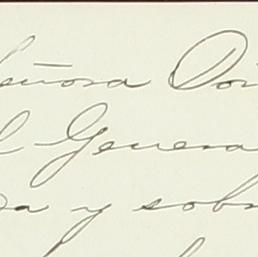 eñora Do
l Genera
da y sob